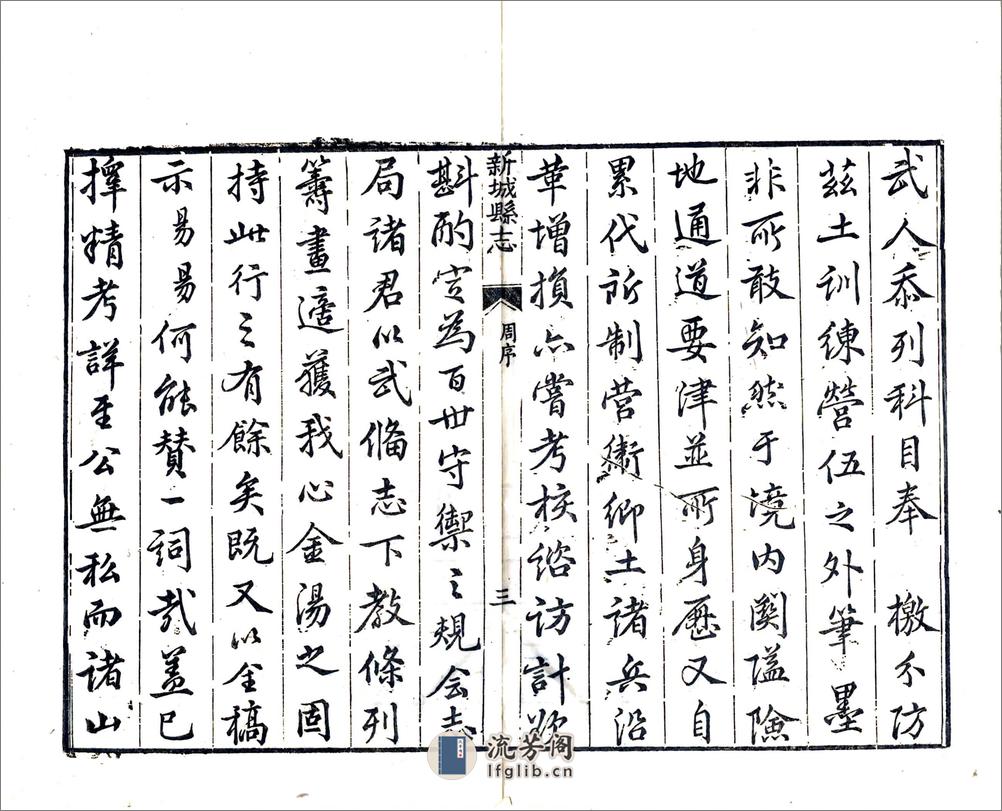 武人忝列科目奉 檄分防
茲土訓練營伍之外筆墨
非所敢知然于境內関隘險
地通道要津並所身歷又自
累代所制营衛鄉土諸兵沿
革增損亦嘗考校諮訪計欲
新城縣志
周序
三
斟酌定為百世守禦之規会志
局諸君以武俻志下教條列
籌畫適獲我心金湯之固
持此行之有餘矣既又以全稿
示昜昜何能贊一詞哉盖已
擇精考詳至公無私而諸山
流芳阁
lfglib.cn